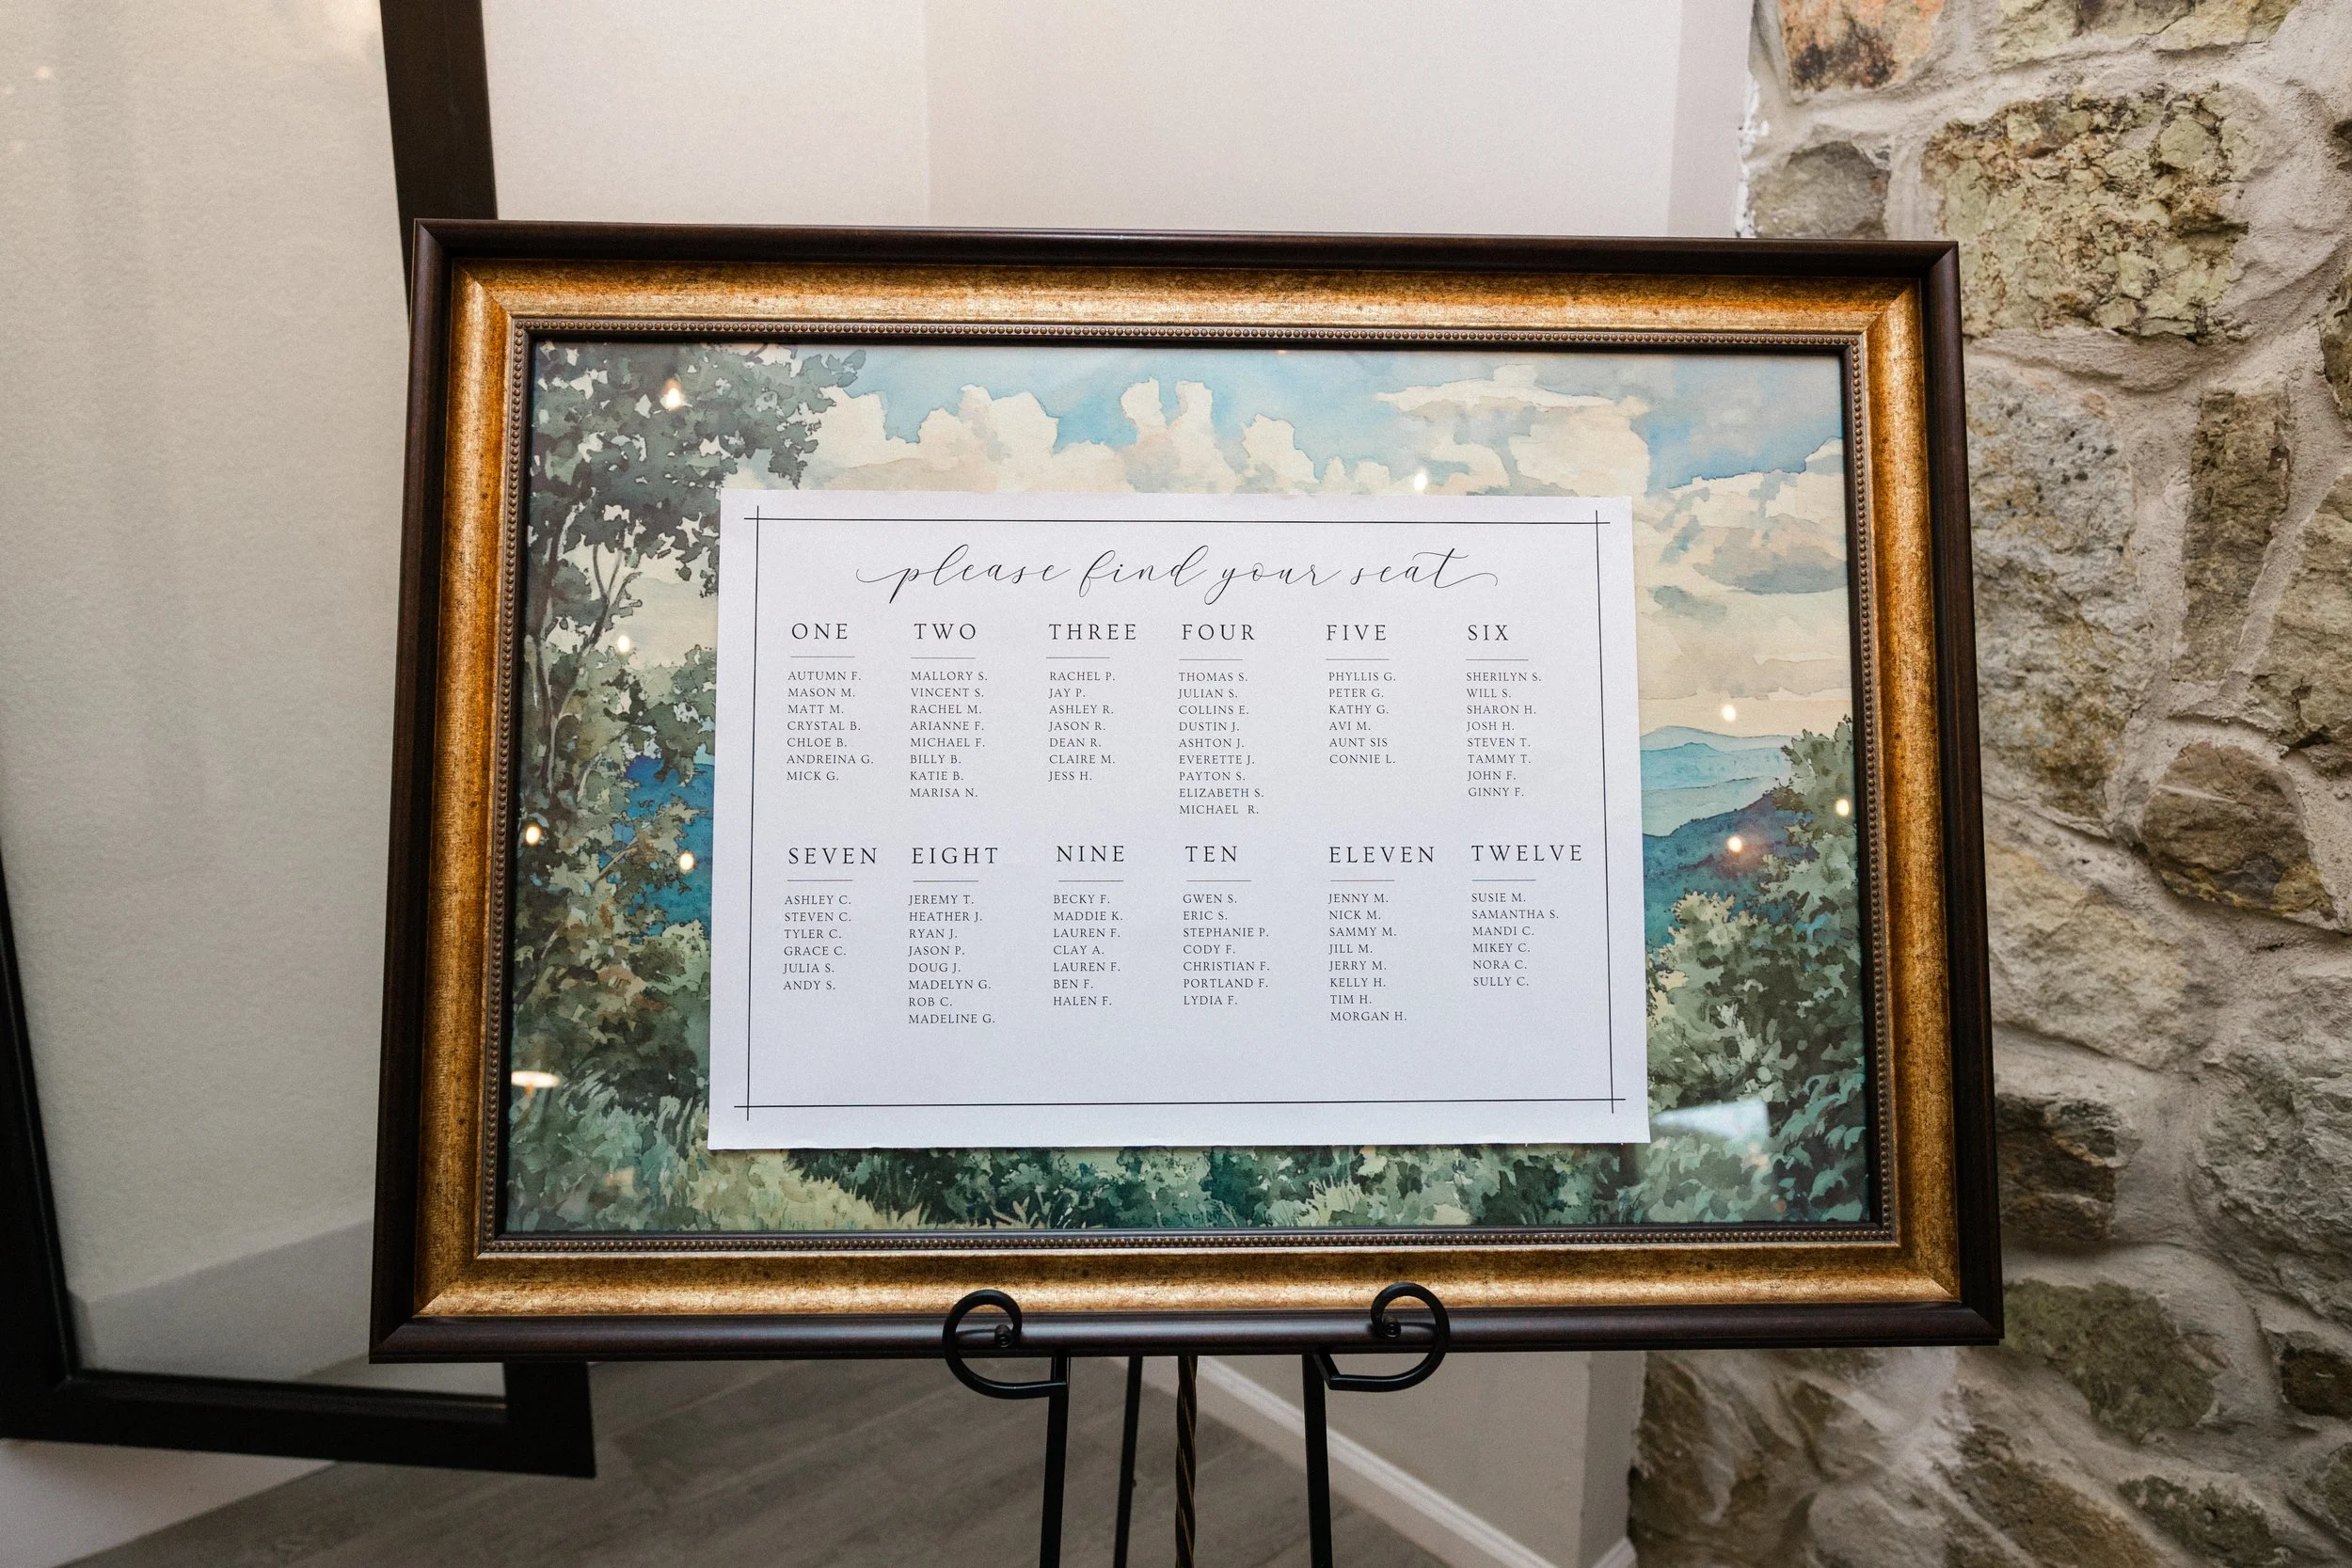 please find your seat
ONE
AUTUMN F.
MASON M.
MATT M.
CRYSTAL B.
CHLOE B.
ANDREINA G.
MICK G.
TWO
MALLORY S.
VINCENT S.
RACHEL M.
ARIANNE F.
MICHAEL F.
BILLY B.
KATIE B.
MARISA N.
THREE
RACHEL P.
JAY P.
ASHLEY R.
JASON R.
DEAN R.
CLAIRE M.
JESS H.
FOUR
THOMAS S.
JULIAN S.
COLLINS E.
DUSTIN J.
ASHTON J.
EVERETTE J.
PAYTON S.
ELIZABETH S.
MICHAEL R.
FIVE
PHYLLIS G.
PETER G.
KATHY G.
AVI M.
AUNT SIS
CONNIE L.
SIX
SHERILYN S.
WILL S.
SHARON H.
JOSH H.
STEVEN T.
TAMMY T.
JOHN F.
GINNY F.
SEVEN
ASHLEY C.
STEVEN C.
TYLER C.
GRACE C.
JULIA S.
ANDY S.
EIGHT
JEREMY T.
HEATHER J.
RYAN J.
JASON P.
DOUG J.
MADELYN G.
ROB C.
MADELINE G.
NINE
BECKY F.
MADDIE K.
LAUREN F.
CLAY A.
LAUREN F.
BEN F.
HALEN F.
TEN
GWEN S.
ERIC S.
STEPHANIE P.
CODY F.
CHRISTIAN F.
PORTLAND F.
LYDIA F.
ELEVEN
JENNY M.
NICK M.
SAMMY M.
JILL M.
JERRY M.
KELLY H.
TIM H.
MORGAN H.
TWELVE
SUSIE M.
SAMANTHA S.
MANDI C.
MIKEY C.
NORA C.
SULLY C.